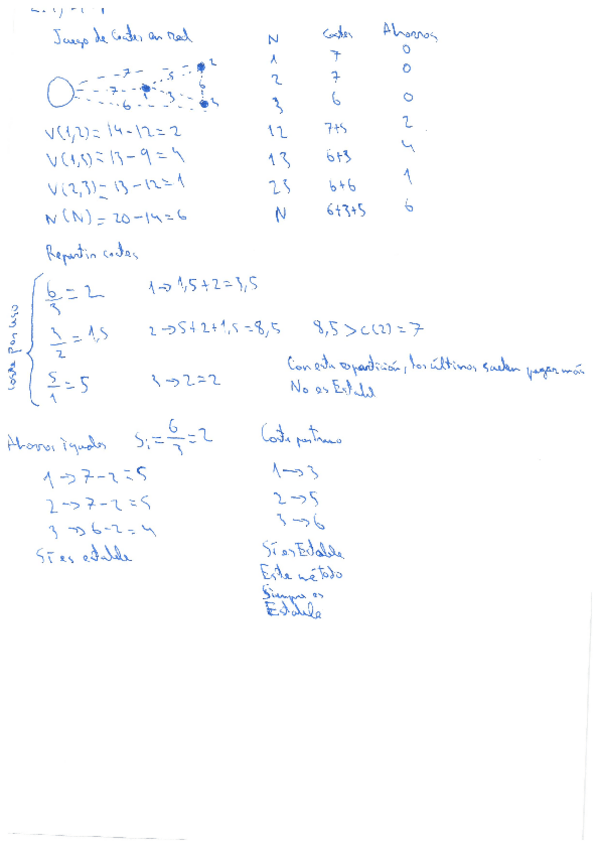 Juego de Costes en red
N Costes Ahorros
1 7 0
2 7 0
3 6 0
12 7+5 2
13 6+3 4
23 6+6 1
N 6+3+5 6
7 5 2
7 1 3 6
6 3
V(1,2)=14-12=2
V(1,3)=13-9=4
V(2,3)=13-12=1
N(N)=20-14=6
Repartir costes
Coste por uso
6/3=2 1→1,5+2=3,5
3/2=1,5 2→5+2+1,5=8,5 8,5>c(2)=7
5/1=5 3→2=2
Con esta repartición, los últimos suelen pagar más
No es Estable
Ahorros iguales Si=6/3=2
1→7-2=5
2→7-2=5
3→6-2=4
Sí es estable
Coste por tramo
1→3
2→5
3→6
Sí es Estable
Este método
Siempre es
Estable